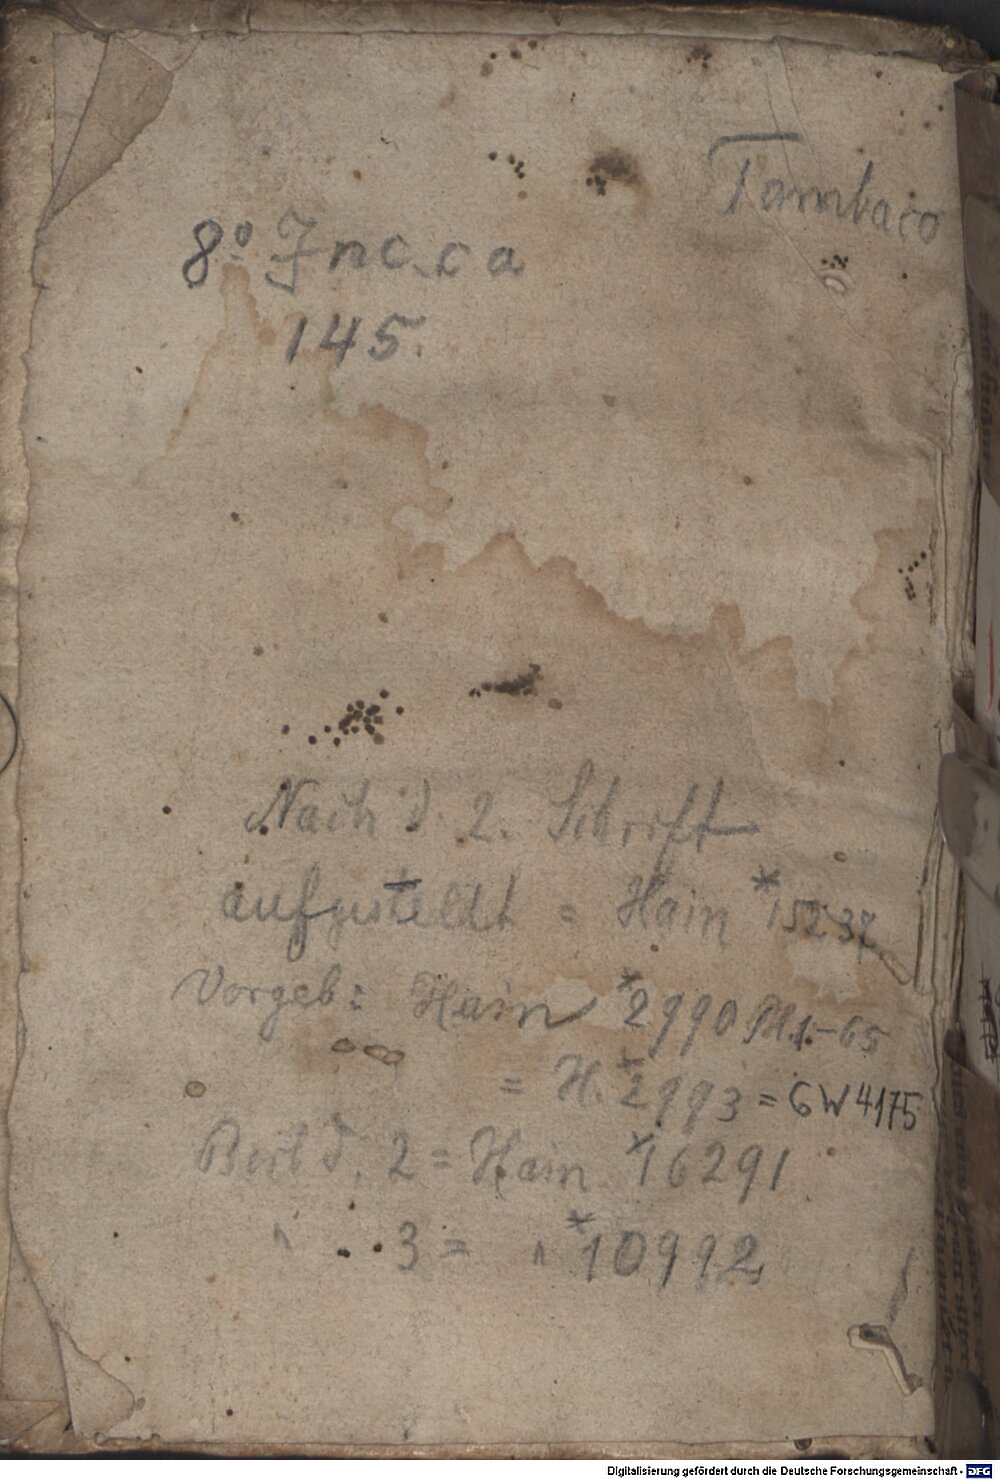 Tambaco
8° Inc. c a
145.
Nach d. 2. Schrift
aufgestellt = Hain *15237
Vorgeb: Hain *2990 M.1.-65
= H. *2993 = GW 4175
Beib d. 2 = Hain *16291
" 3 = " *10992
Digitalisierung gefördert durch die Deutsche Forschungsgemeinschaft - DFG